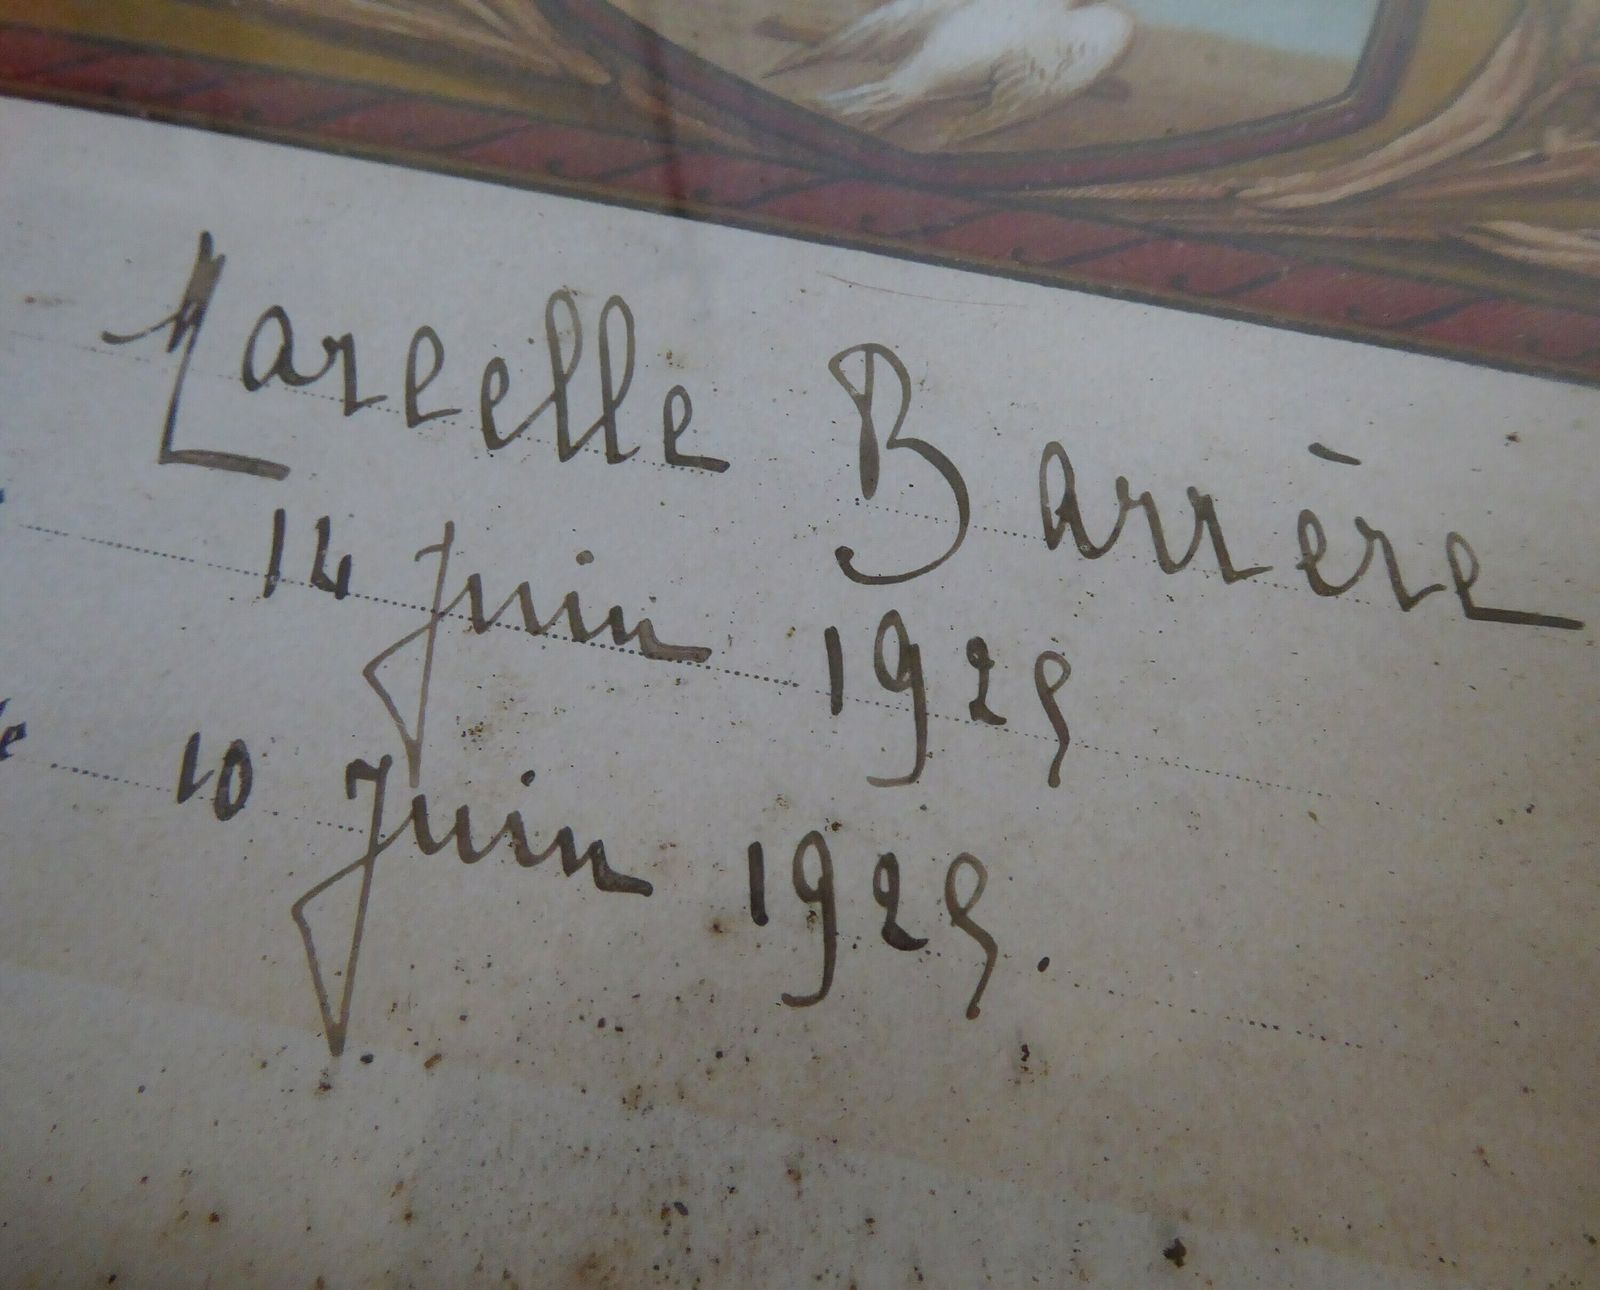 Marcelle Barrère
14 Juin 1925
10 Juin 1925.